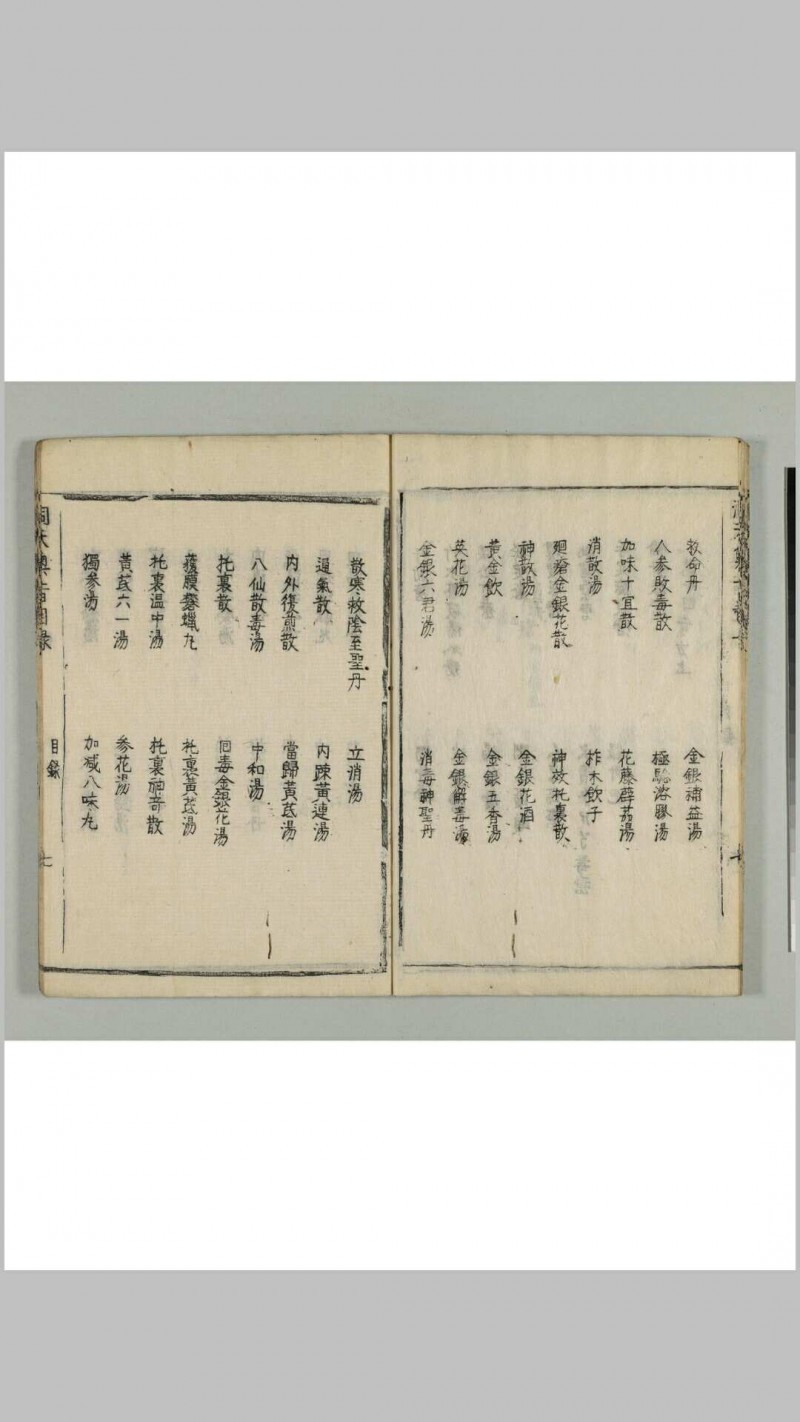 救命丹 金銀補益湯
人参敗毒散 極驗溶膠湯
加味十宣散 花藤薜荔湯
消散湯 柞木飲子
廻瘡金銀花散 神效托裏散
神散湯 金銀花酒
黄金飲 金銀五香湯
英花湯 金銀解毒湯
金銀六君湯 消毒神聖丹
散寒救陰至聖丹 立消湯
逼氣散 内踈黄連湯
内外復煎散 當歸黄芪湯
八仙散毒湯 中和湯
托裏散 回毒金銀花湯
護膜礬蠟丸 托裏黄芪湯
托裏温中湯 托裏神奇散
黄芪六一湯 参花湯
獨参湯 加减八味丸
洞天奥旨目録 目錄 七